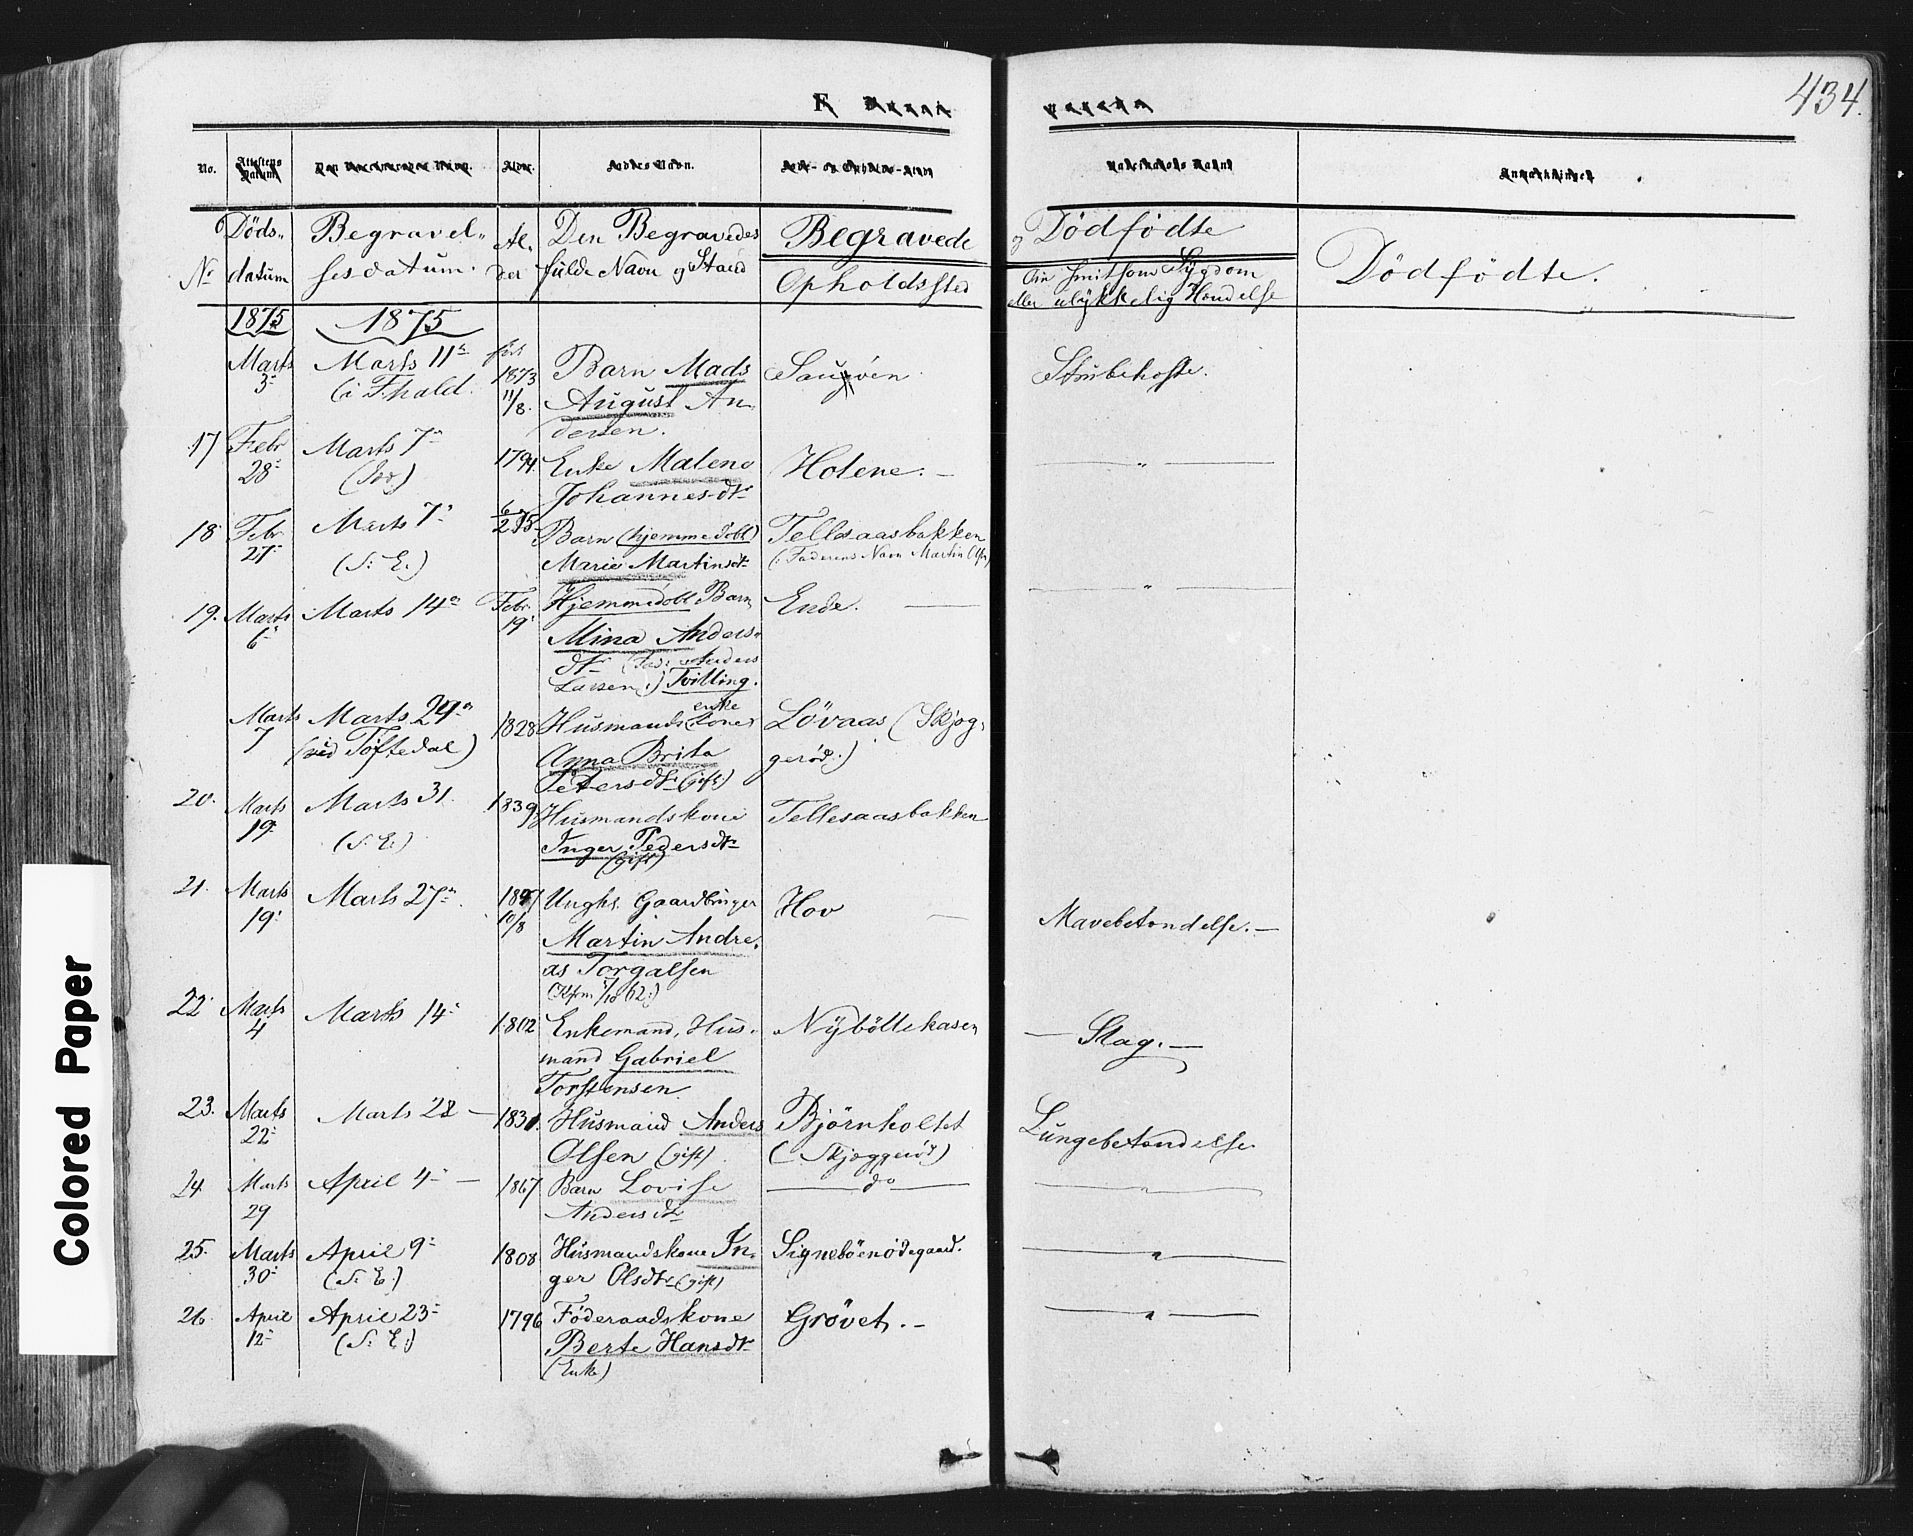 434.
No.
Alder.
Døds- Begravel- Al- Den Begravedes Begravede og Dødfødte
No datum sesdatum. der fulde Navn og Stand Opholdssted Om smitsom Sygdom eller ulykkelig Hændelse Dødfødte.
1875 1875
Marts 3- Marts 11- (i Fhald. 1873 11/8. Barn Mads August An- dersen. Strubehoste.
17 Febr 28- Marts 7- 1794. Enke Malene Johannesdtr Holene. -
18 Febr 27- Marts 7- (S. E.) Barn (hjemmedöbt) Marie Martinsdtr Tellesaasbakken (: Faderens Navn Martin Olsen)
19. Marts 6- Marts 14- Febr. 19- Hjemmedöbt Barn Mina Anders- dtr (Fad: Anders Larsen:) Tvilling. Ende.
Marts 7 Marts 24- (ved Töftedal) 1828 Husmands Anna Brita Petersdtr (gift) Lövaas (Skjog- geröd.)
20. Marts 19- Marts 31. (S. E.) 1839 Husmandskone Inger Pedersdtr (gift) Tellesaasbakken
21. Marts 19- Marts 27- 10/8 Ungk. Gaardbruger Martin Andre- as Torgalsen Hov Mavebetændelse. -
22 Marts 4 Marts 14- 1802 Enkemand, Hus- mand Gabriel Torstensen. Nyböllekasen - Slag. -
23. Marts 22- Marts 28 - Husmand Anders Olsen (gift) Björnholtet (Skjoggeröd) Lungebetændelse
24 Marts 29 April 4- - 1867 Barn Lovise Andersdtr do
25. Marts 30- April 9- (S. E.) 1808 Husmandskone In- ger Olsdtr (gift) Signeböenödegaard.
26. April 12- April 23- (S. E.) 1796 Föderaadskone Berte Hansdtr (Enke) Grövet. -
Colored Paper